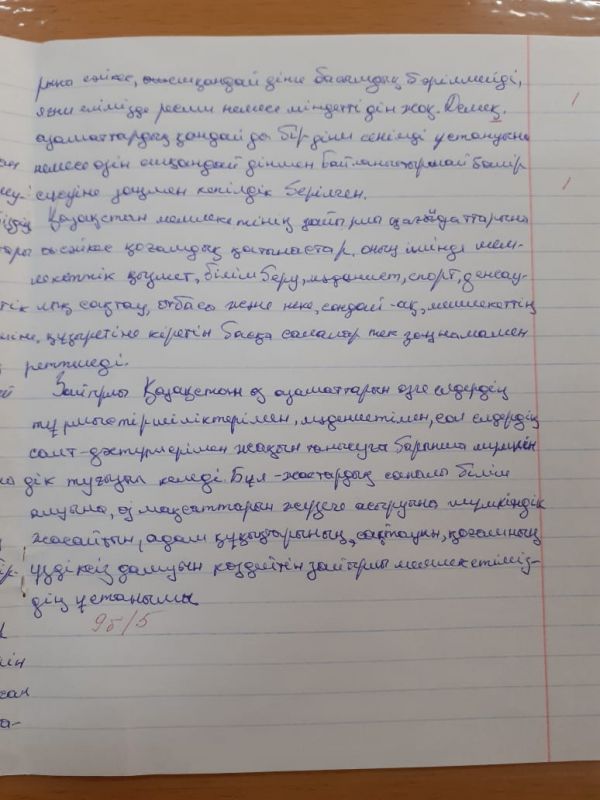 рына сәйкес, ешқандай дінге басымдық берілмейді,
яғни елімізде ресми немесе міндетті дін жоқ. Демек,
азаматтардың қандай да бір діни сенімді ұстануына
немесе өзін ешқандай дінмен байланыстырмай
еркіне заңмен кепілдік берілген.
Қазақстан мемлекетінің зайырлы қағидаттарына
сәйкес қоғамдық қатынастар, оның ішінде мем-
лекеттік қызмет, білім беру, мәдениет, спорт, денсау-
лық сақтау, отбасы және неке, сондай-ақ, мемлекеттің
құзыретіне кіретін басқа салалар тек заңнамамен
реттеледі.
Зайырлы Қазақстан өз азаматтарын өзге елдердің
тұрмыс-тіршіліктерімен, мәдениетімен, сол елдердің
салт-дәстүрлерімен жақын танысуға барынша мүмкін
дік туғызып келеді. Бұл - жастардың сапалы білім
алуына, өз мақсаттарын жүзеге асыруына мүмкіндік
жасайтын, адам құқықтарының сақталуын, қоғамның
үздіксіз дамуын көздейтін зайырлы мемлекетіміз-
дің ұстанымы
9б/5